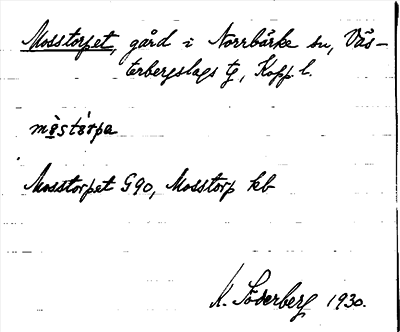 Mosstorpet, gård i Norrbärke sn, Väs-
terbergslags tg, Kopp l.
mɷ̀stórpa
Mosstorpet G90, Mosstorp kb
K. Söderberg 1930.